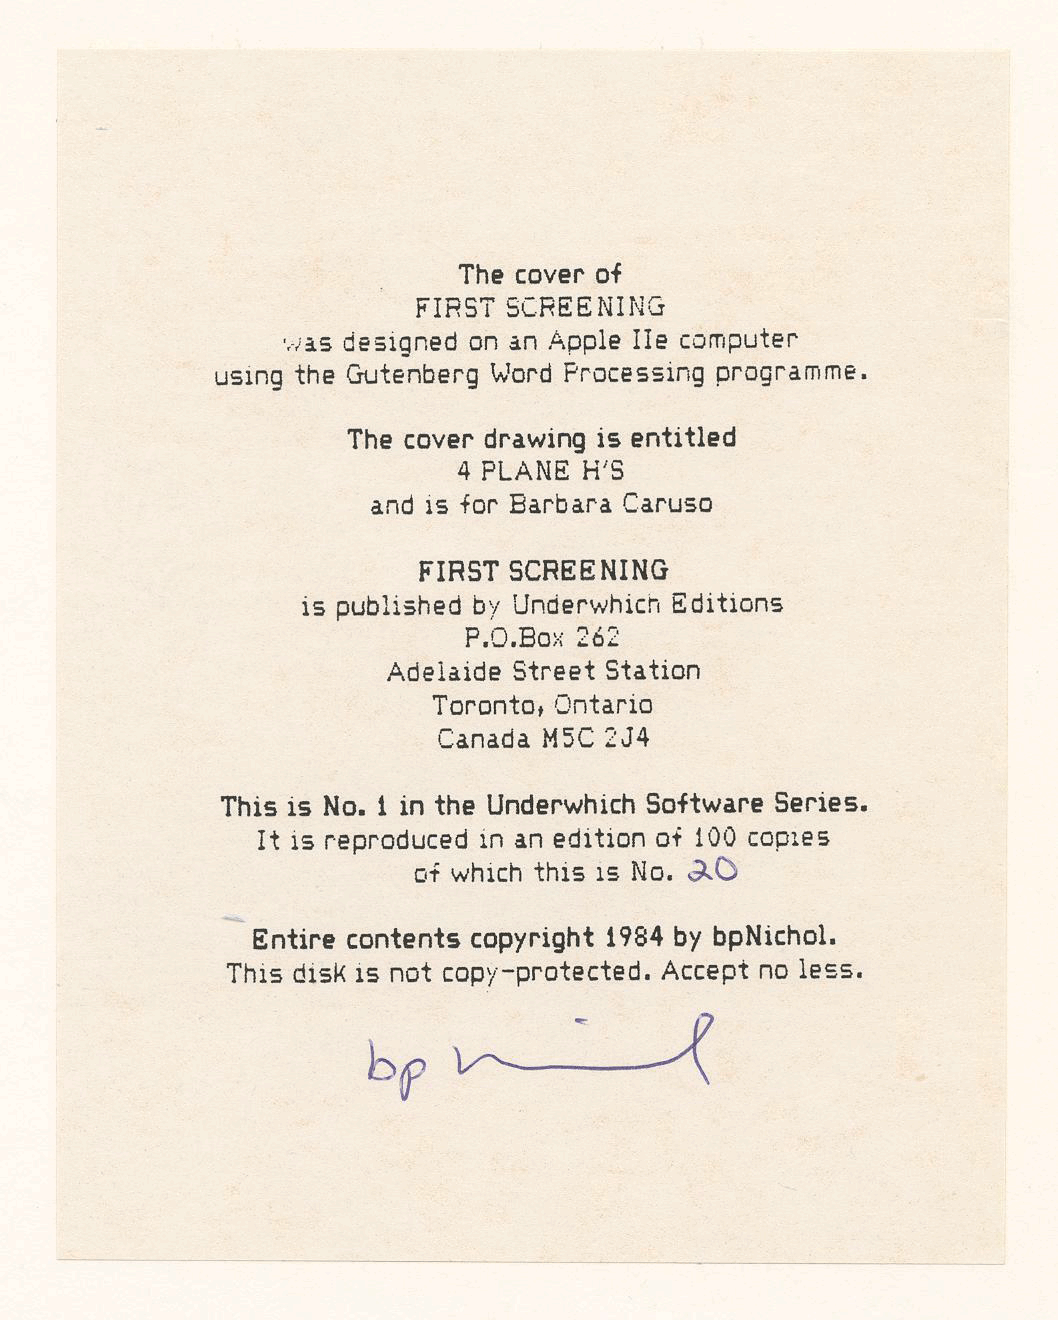 The cover of
FIRST SCREENING
was designed on an Apple IIe computer
using the Gutenberg Word Processing programme.
The cover drawing is entitled
4 PLANE H'S
and is for Barbara Caruso
FIRST SCREENING
is published by Underwhich Editions
P.O.Box 262
Adelaide Street Station
Toronto, Ontario
Canada M5C 2J4
This is No. 1 in the Underwhich Software Series.
It is reproduced in an edition of 100 copies
of which this is No. 20
Entire contents copyright 1984 by bpNichol.
This disk is not copy-protected. Accept no less.
bpNichol